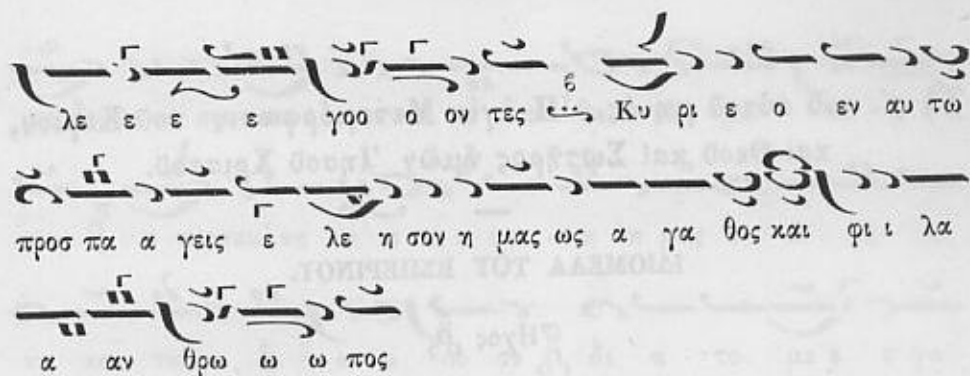 λε ε ε ε γοο ο ον τες Κυ ρι ε ο εν αυ τω
προσ πα α γεις ε λε η σον η μας ως α γα θος και φι ι λα
α αν θρω ω ω πος